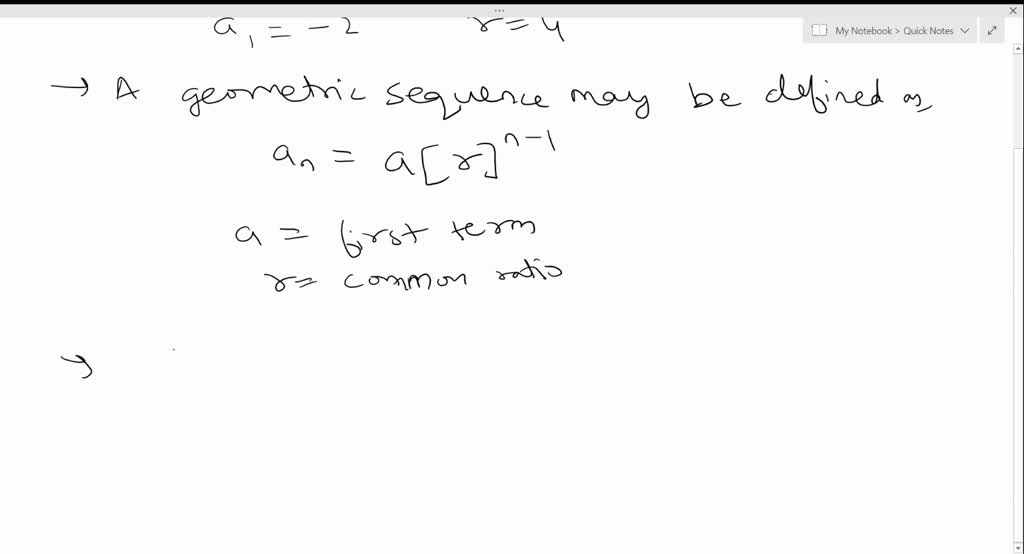 My Notebook > Quick Notes
a₁ = -2 r = 4
→ A geometric sequence may be defined as,
aₙ = a[r]ⁿ⁻¹
a = first term
r = common ratio
→